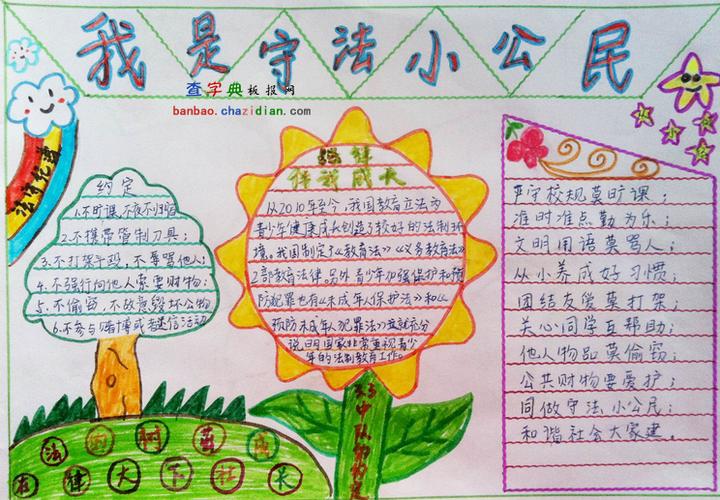 我是守法小公民
查字典板报网
banbao.chazidian.com
约定
1.不旷课,不夜不归宿
2.不携带管制刀具;
3.不打架斗殴,不辱骂他人;
4.不强行向他人索要财物;
5.不偷窃,不故意毁坏公物
6.不参与赌博或者迷信活动
法律
伴我成长
从2010年至今,我国教育立法为
青少年健康成长创造了较好的法制环
境。我国制定了《教育法》《义务教育法》
2部教育法律。另外青少年加强保护和预
防犯罪也有《未成年人保护法》和《
预防未成年人犯罪法》这就充分
说明国家非常重视青少
年的法制教育工作。
严守校规莫旷课;
准时准点勤为乐;
文明用语莫骂人;
从小养成好习惯;
团结友爱莫打架;
关心同学互帮助;
他人物品莫偷窃;
公共财物要爱护;
同做守法小公民;
和谐社会大家建。
法 树 成
在 律 大 下 社 长
中队